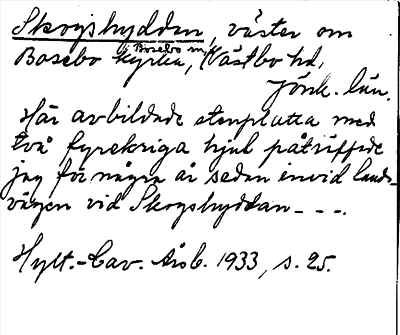 Skogshyddan, väster om
Bosebo kyrka, Bosebo sn, Västbo hd,
Jönk. län.
Här avbildade stenplatta med
två fyrekriga hjul påträffade
jag för några år sedan invid lands-
vägen vid Skogshyddan - - -.
Hylt.-Cav. Årsb. 1933, s. 25.